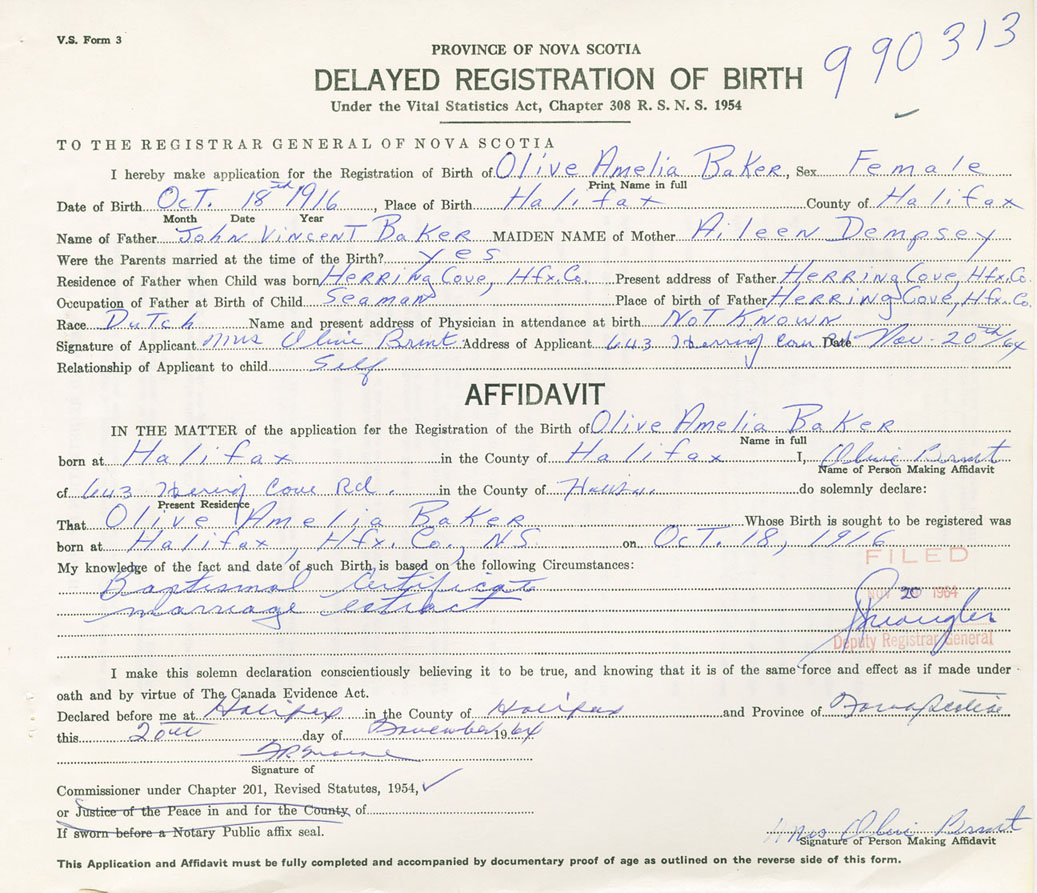 V.S. Form 3
990313
PROVINCE OF NOVA SCOTIA
DELAYED REGISTRATION OF BIRTH
Under the Vital Statistics Act, Chapter 308 R. S. N. S. 1954
TO THE REGISTRAR GENERAL OF NOVA SCOTIA
I hereby make application for the Registration of Birth of Olive Amelia Baker, Sex Female
Print Name in full
Date of Birth Oct. 18th 1916, Place of Birth Halifax County of Halifax
Month Date Year
Name of Father John Vincent Baker MAIDEN NAME of Mother Aileen Dempsey
Were the Parents married at the time of the Birth? yes
Residence of Father when Child was born Herring Cove, Hfx. Co. Present address of Father Herring Cove, Hfx. Co.
Occupation of Father at Birth of Child Seaman Place of birth of Father Herring Cove, Hfx. Co.
Race Dutch Name and present address of Physician in attendance at birth Not Known
Signature of Applicant Mrs Olive Brunt Address of Applicant 643 Herring Cove Rd Date Nov. 20th/64
Relationship of Applicant to child Self
AFFIDAVIT
IN THE MATTER of the application for the Registration of the Birth of Olive Amelia Baker
Name in full
born at Halifax in the County of Halifax I, Olive Brunt
Name of Person Making Affidavit
of 643 Herring Cove Rd. in the County of Halifax do solemnly declare:
Present Residence
That Olive Amelia Baker Whose Birth is sought to be registered was
born at Halifax, Hfx. Co., NS. on Oct. 18, 1916
FILED
My knowledge of the fact and date of such Birth, is based on the following Circumstances:
Baptismal Certificate
NOV 20 1964
marriage extract
Deputy Registrar General
I make this solemn declaration conscientiously believing it to be true, and knowing that it is of the same force and effect as if made under
oath and by virtue of The Canada Evidence Act.
Declared before me at Halifax in the County of Halifax and Province of Nova Scotia
this 20th day of November 1964
Signature of
Commissioner under Chapter 201, Revised Statutes, 1954, ✓
or Justice of the Peace in and for the County, of
If sworn before a Notary Public affix seal.
Mrs Olive Brunt
Signature of Person Making Affidavit
This Application and Affidavit must be fully completed and accompanied by documentary proof of age as outlined on the reverse side of this form.